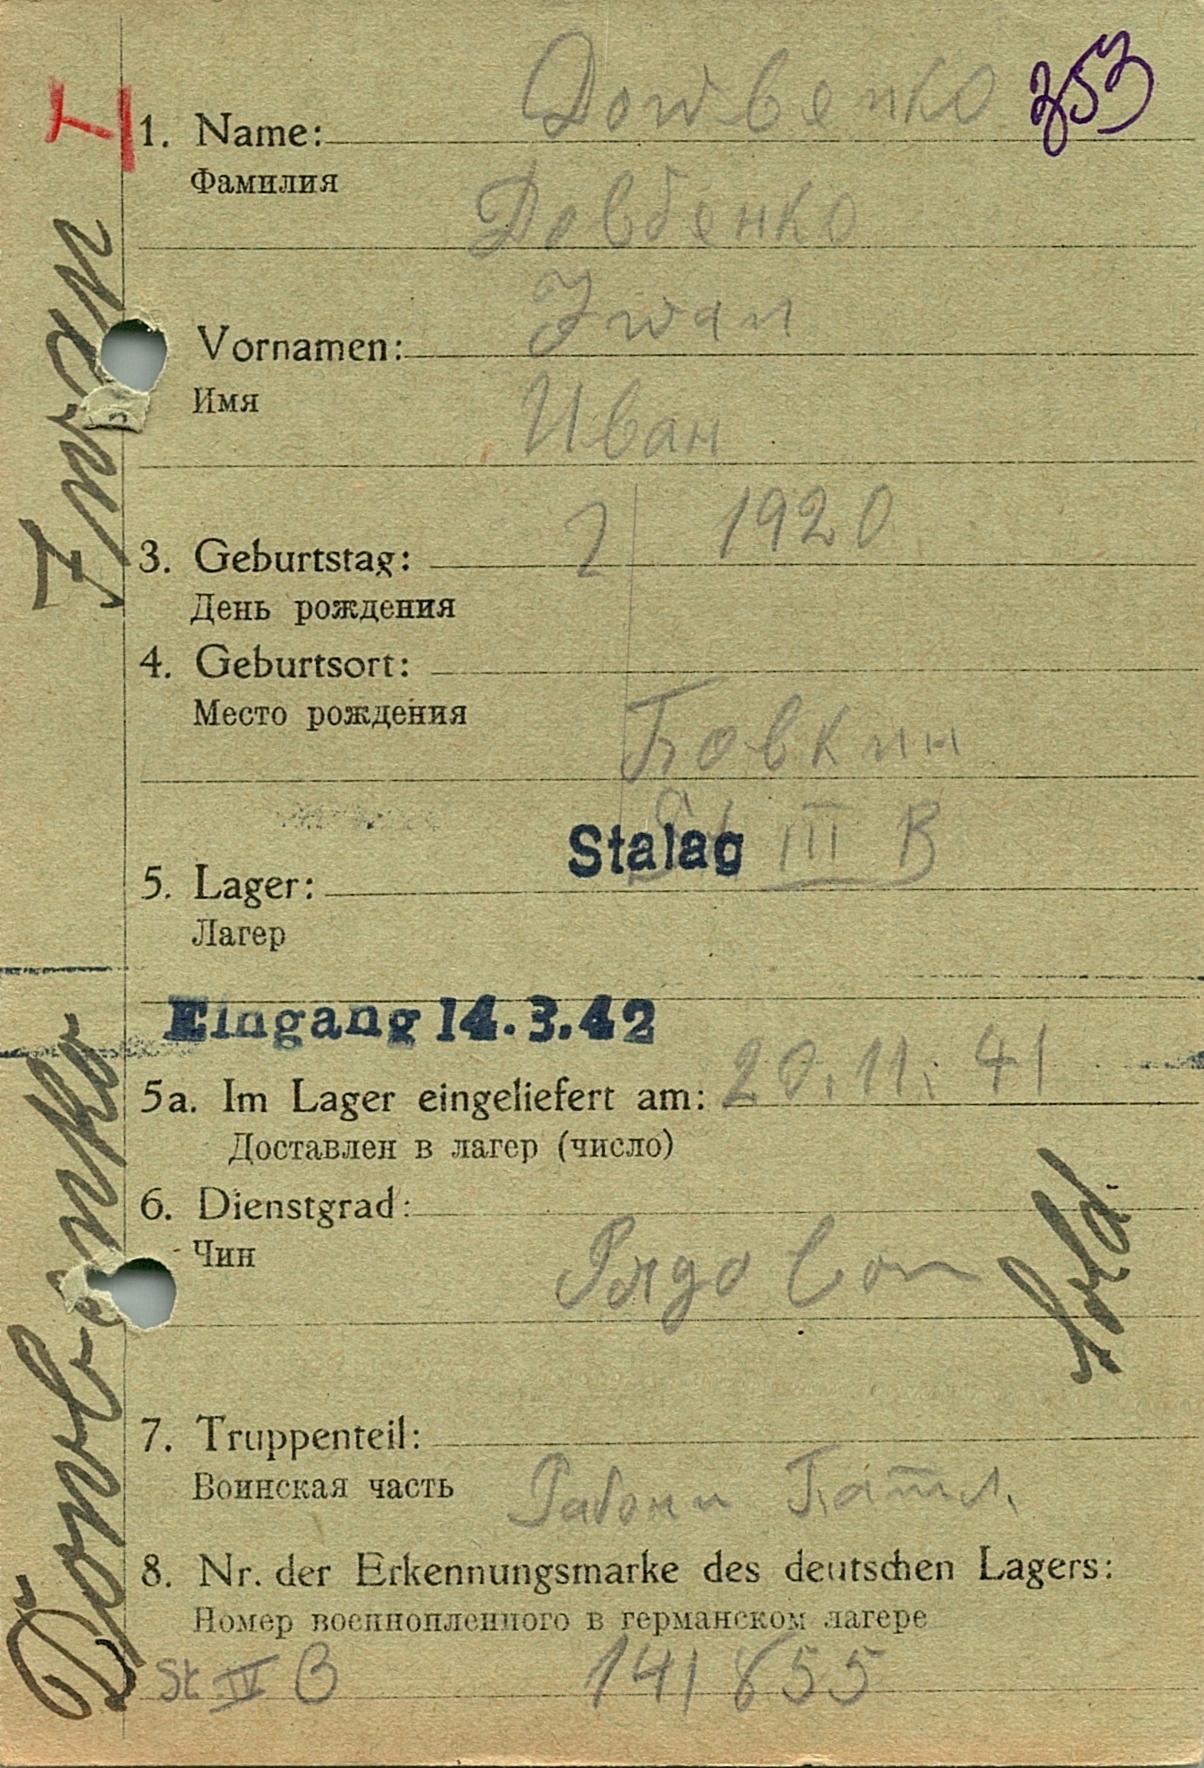 353
Dowbenko
1. Name:
Фамилия
Довбенко
Iwan
Vornamen:
Имя
Иван
2 1920
3. Geburtstag:
День рождения
4. Geburtsort:
Место рождения
Бовкин
Stalag III B
5. Lager:
Лагер
Eingang 14.3.42
5a. Im Lager eingeliefert am: 20.11.41
Доставлен в лагер (число)
6. Dienstgrad:
Чин
Рядовой
Sold.
7. Truppenteil:
Воинская часть
Батл.
8. Nr. der Erkennungsmarke des deutschen Lagers:
Номер военнопленного в германском лагере
St IV B 141855
Dowbenko Iwan